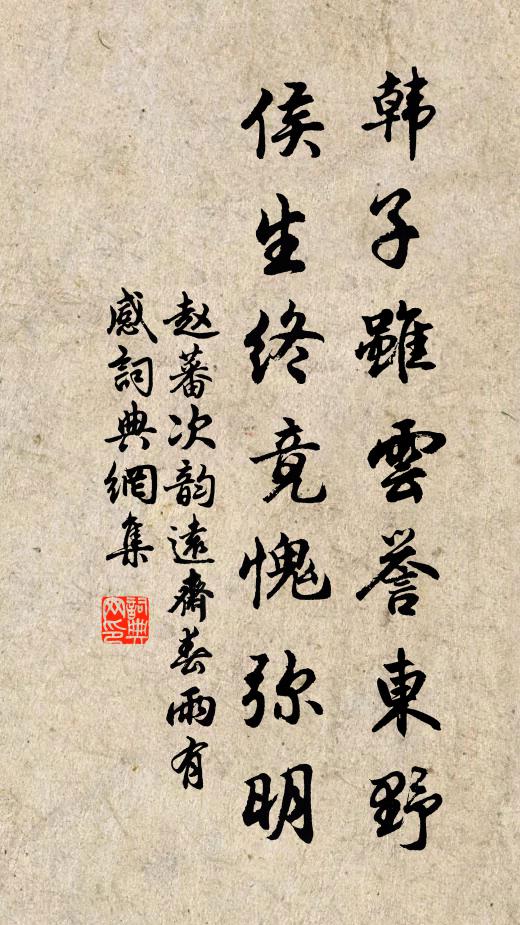 韩子雖雲譽東野
侯生终竟愧弥明
赵蕃次韵遠齋春雨有
感詞典網集
詞典
网印